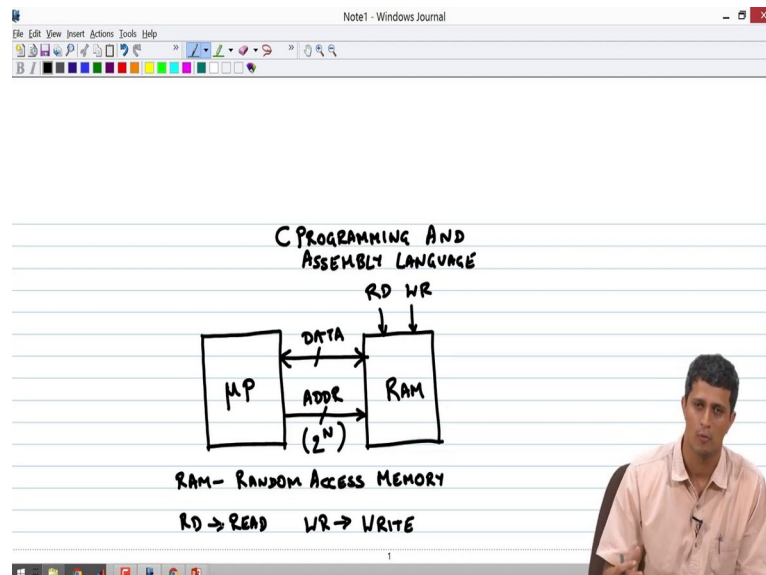 Note1 - Windows Journal
File Edit View Insert Actions Tools Help
B I
C PROGRAMMING AND
ASSEMBLY LANGUAGE
RD WR
DATA
μP
RAM
ADDR
(2^N)
RAM- RANDOM ACCESS MEMORY
RD → READ WR → WRITE
1